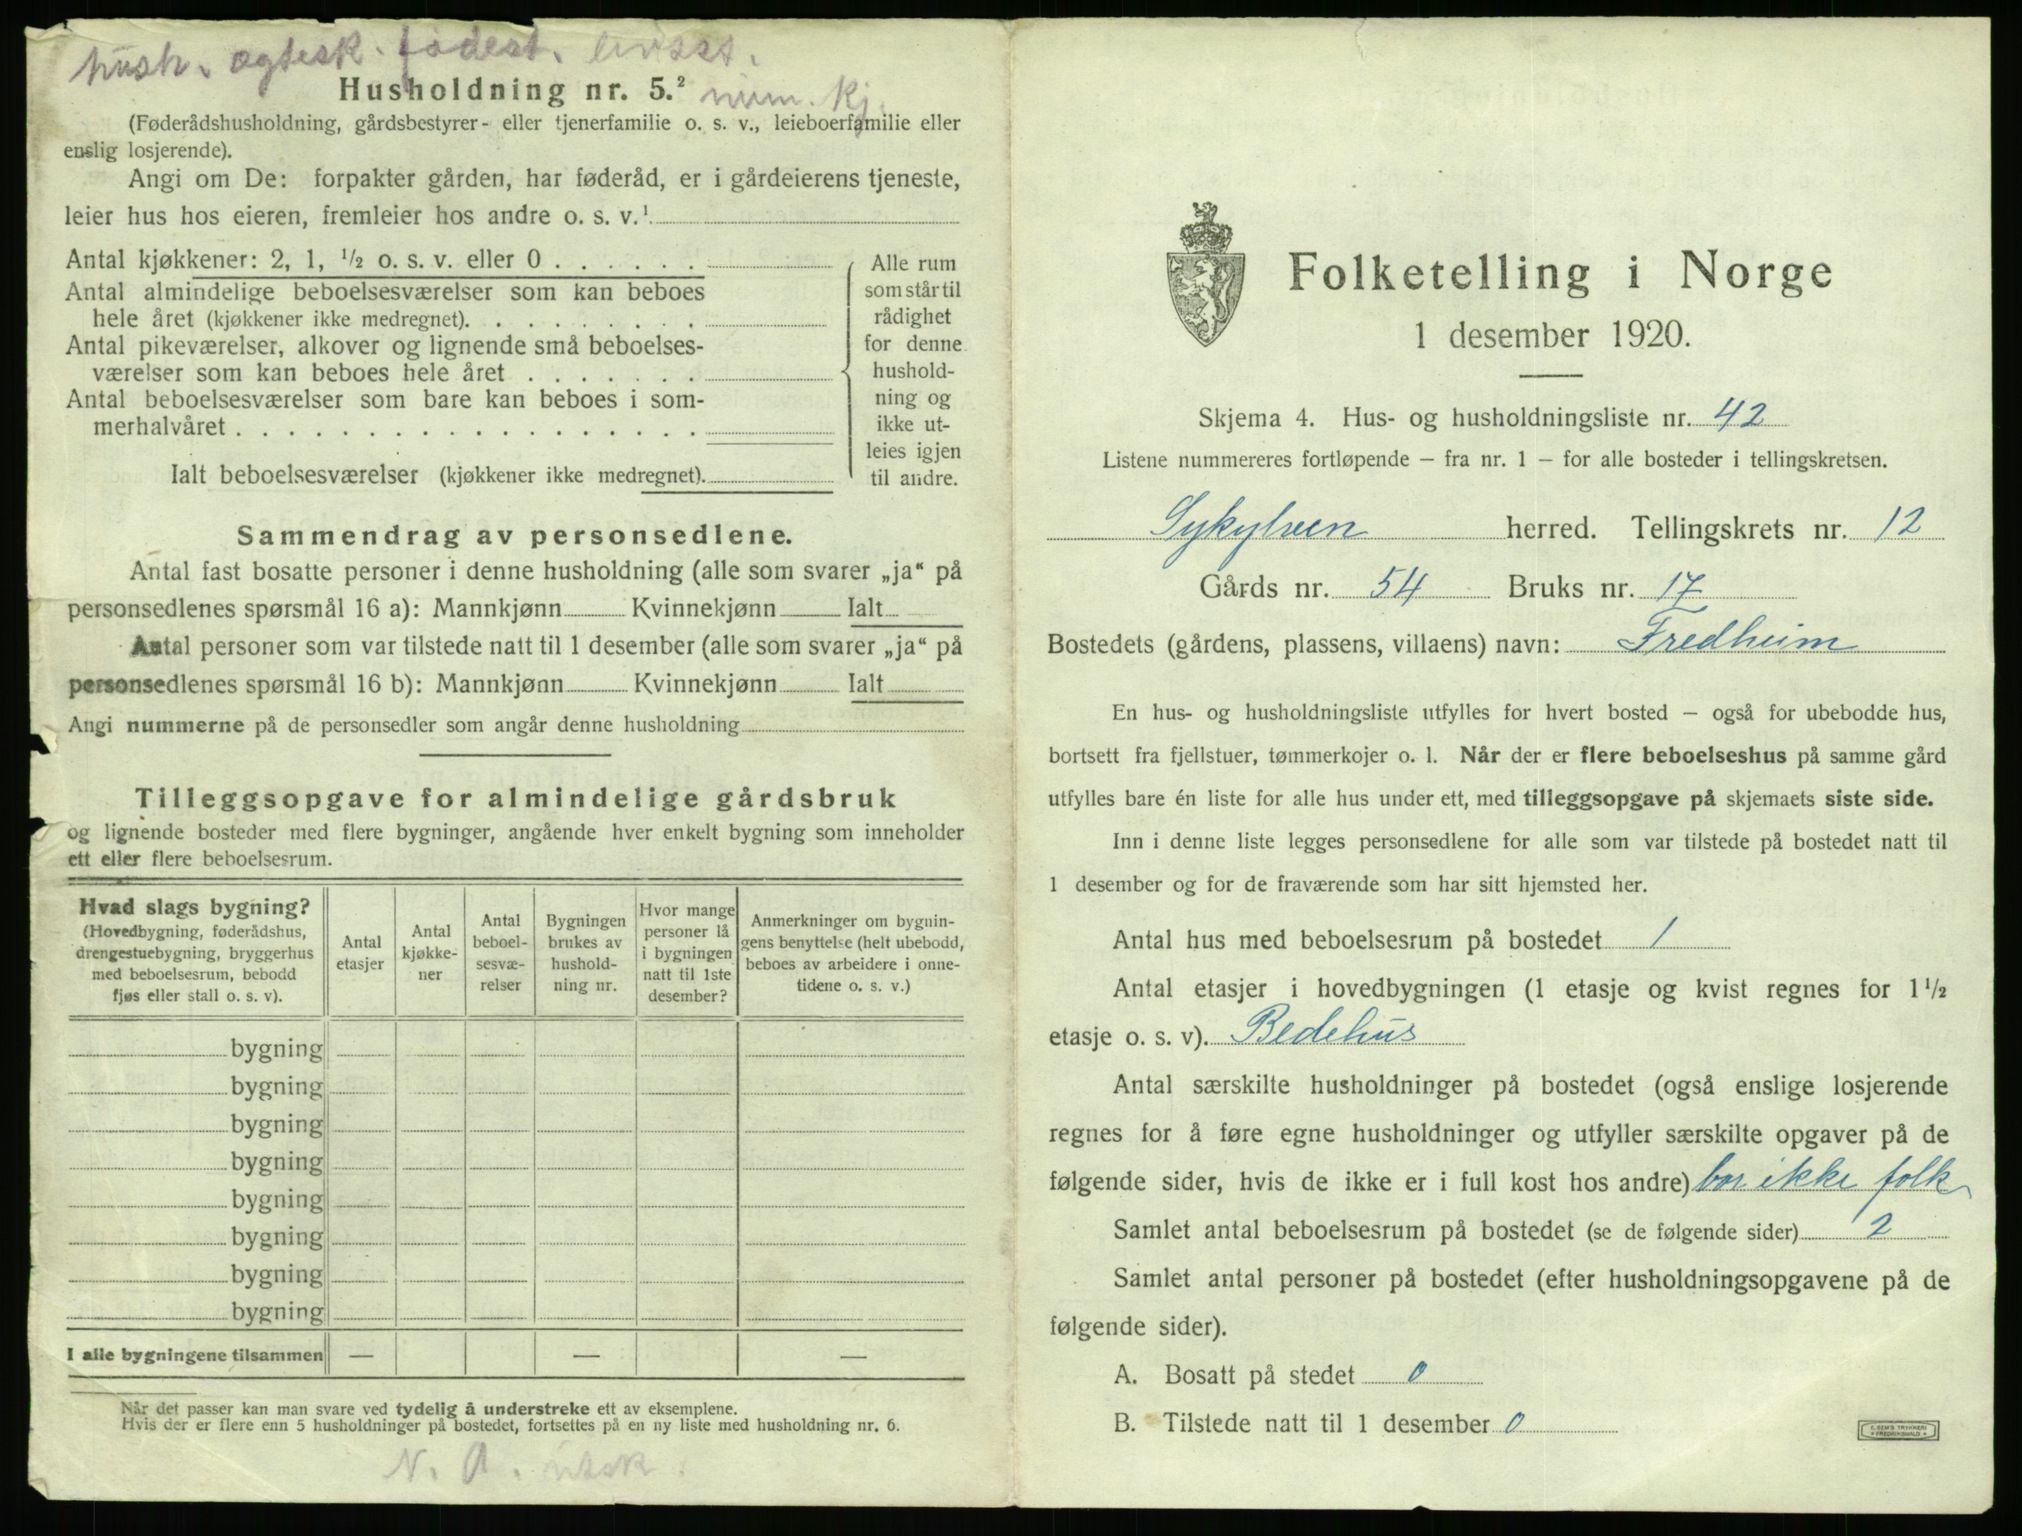 hush. egtesk. fødest. livsst.
Husholdning nr. 5.² num. kj.
(Føderådshusholdning, gårdsbestyrer- eller tjenerfamilie o. s. v., leieboerfamilie eller
enslig losjerende).
Angi om De: forpakter gården, har føderåd, er i gårdeierens tjeneste,
leier hus hos eieren, fremleier hos andre o. s. v.¹
Antal kjøkkener: 2, 1, ½ o. s. v. eller 0 . . . . . .
Antal almindelige beboelsesværelser som kan beboes
hele året (kjøkkener ikke medregnet). . . . . . . . .
Antal pikeværelser, alkover og lignende små beboelses-
værelser som kan beboes hele året . . . . . . .
Antal beboelsesværelser som bare kan beboes i som-
merhalvåret . . . . . . . . . . . . . . . . .
Ialt beboelsesværelser (kjøkkener ikke medregnet).
Alle rum
som står til
rådighet
for denne
hushold-
ning og
ikke ut-
leies igjen
til andre.
Sammendrag av personsedlene.
Antal fast bosatte personer i denne husholdning (alle som svarer „ja“ på
personsedlenes spørsmål 16 a): Mannkjønn Kvinnekjønn Ialt
Antal personer som var tilstede natt til 1 desember (alle som svarer „ja“ på
personsedlenes spørsmål 16 b): Mannkjønn Kvinnekjønn Ialt
Angi nummerne på de personsedler som angår denne husholdning
Tilleggsopgave for almindelige gårdsbruk
og lignende bosteder med flere bygninger, angående hver enkelt bygning som inneholder
ett eller flere beboelsesrum.
Hvad slags bygning?
(Hovedbygning, føderådshus,
drengestuebygning, bryggerhus
med beboelsesrum, bebodd
fjøs eller stall o. s. v).
Antal
etasjer
Antal
kjøkke-
ner
Antal
beboel-
sesvæ-
relser
Bygningen
brukes av
hushold-
ning nr.
Hvor mange
personer lå
i bygningen
natt til 1ste
desember?
Anmerkninger om bygnin-
gens benyttelse (helt ubebodd,
beboes av arbeidere i onne-
tidene o. s. v.)
bygning
bygning
bygning
bygning
bygning
bygning
bygning
bygning
I alle bygningene tilsammen — — —
Når det passer kan man svare ved tydelig å understreke ett av eksemplene.
Hvis der er flere enn 5 husholdninger på bostedet, fortsettes på en ny liste med husholdning nr. 6.
N. A. utsk.
Folketelling i Norge
1 desember 1920.
Skjema 4. Hus- og husholdningsliste nr. 42
Listene nummereres fortløpende – fra nr. 1 – for alle bosteder i tellingskretsen.
Sykylven herred. Tellingskrets nr. 12
Gårds nr. 54 Bruks nr. 17
Bostedets (gårdens, plassens, villaens) navn: Fredheim
En hus- og husholdningsliste utfylles for hvert bosted – også for ubebodde hus,
bortsett fra fjellstuer, tømmerkojer o. l. Når der er flere beboelseshus på samme gård
utfylles bare én liste for alle hus under ett, med tilleggsopgave på skjemaets siste side.
Inn i denne liste legges personsedlene for alle som var tilstede på bostedet natt til
1 desember og for de fraværende som har sitt hjemsted her.
Antal hus med beboelsesrum på bostedet 1
Antal etasjer i hovedbygningen (1 etasje og kvist regnes for 1½
etasje o. s. v). Bedehus
Antal særskilte husholdninger på bostedet (også enslige losjerende
regnes for å føre egne husholdninger og utfyller særskilte opgaver på de
følgende sider, hvis de ikke er i full kost hos andre) bor ikke folk
Samlet antal beboelsesrum på bostedet (se de følgende sider) 2
Samlet antal personer på bostedet (efter husholdningsopgavene på de
følgende sider).
A. Bosatt på stedet 0
B. Tilstede natt til 1 desember 0
E. SEM'S TRYKKERI
FREDRIKSHALD